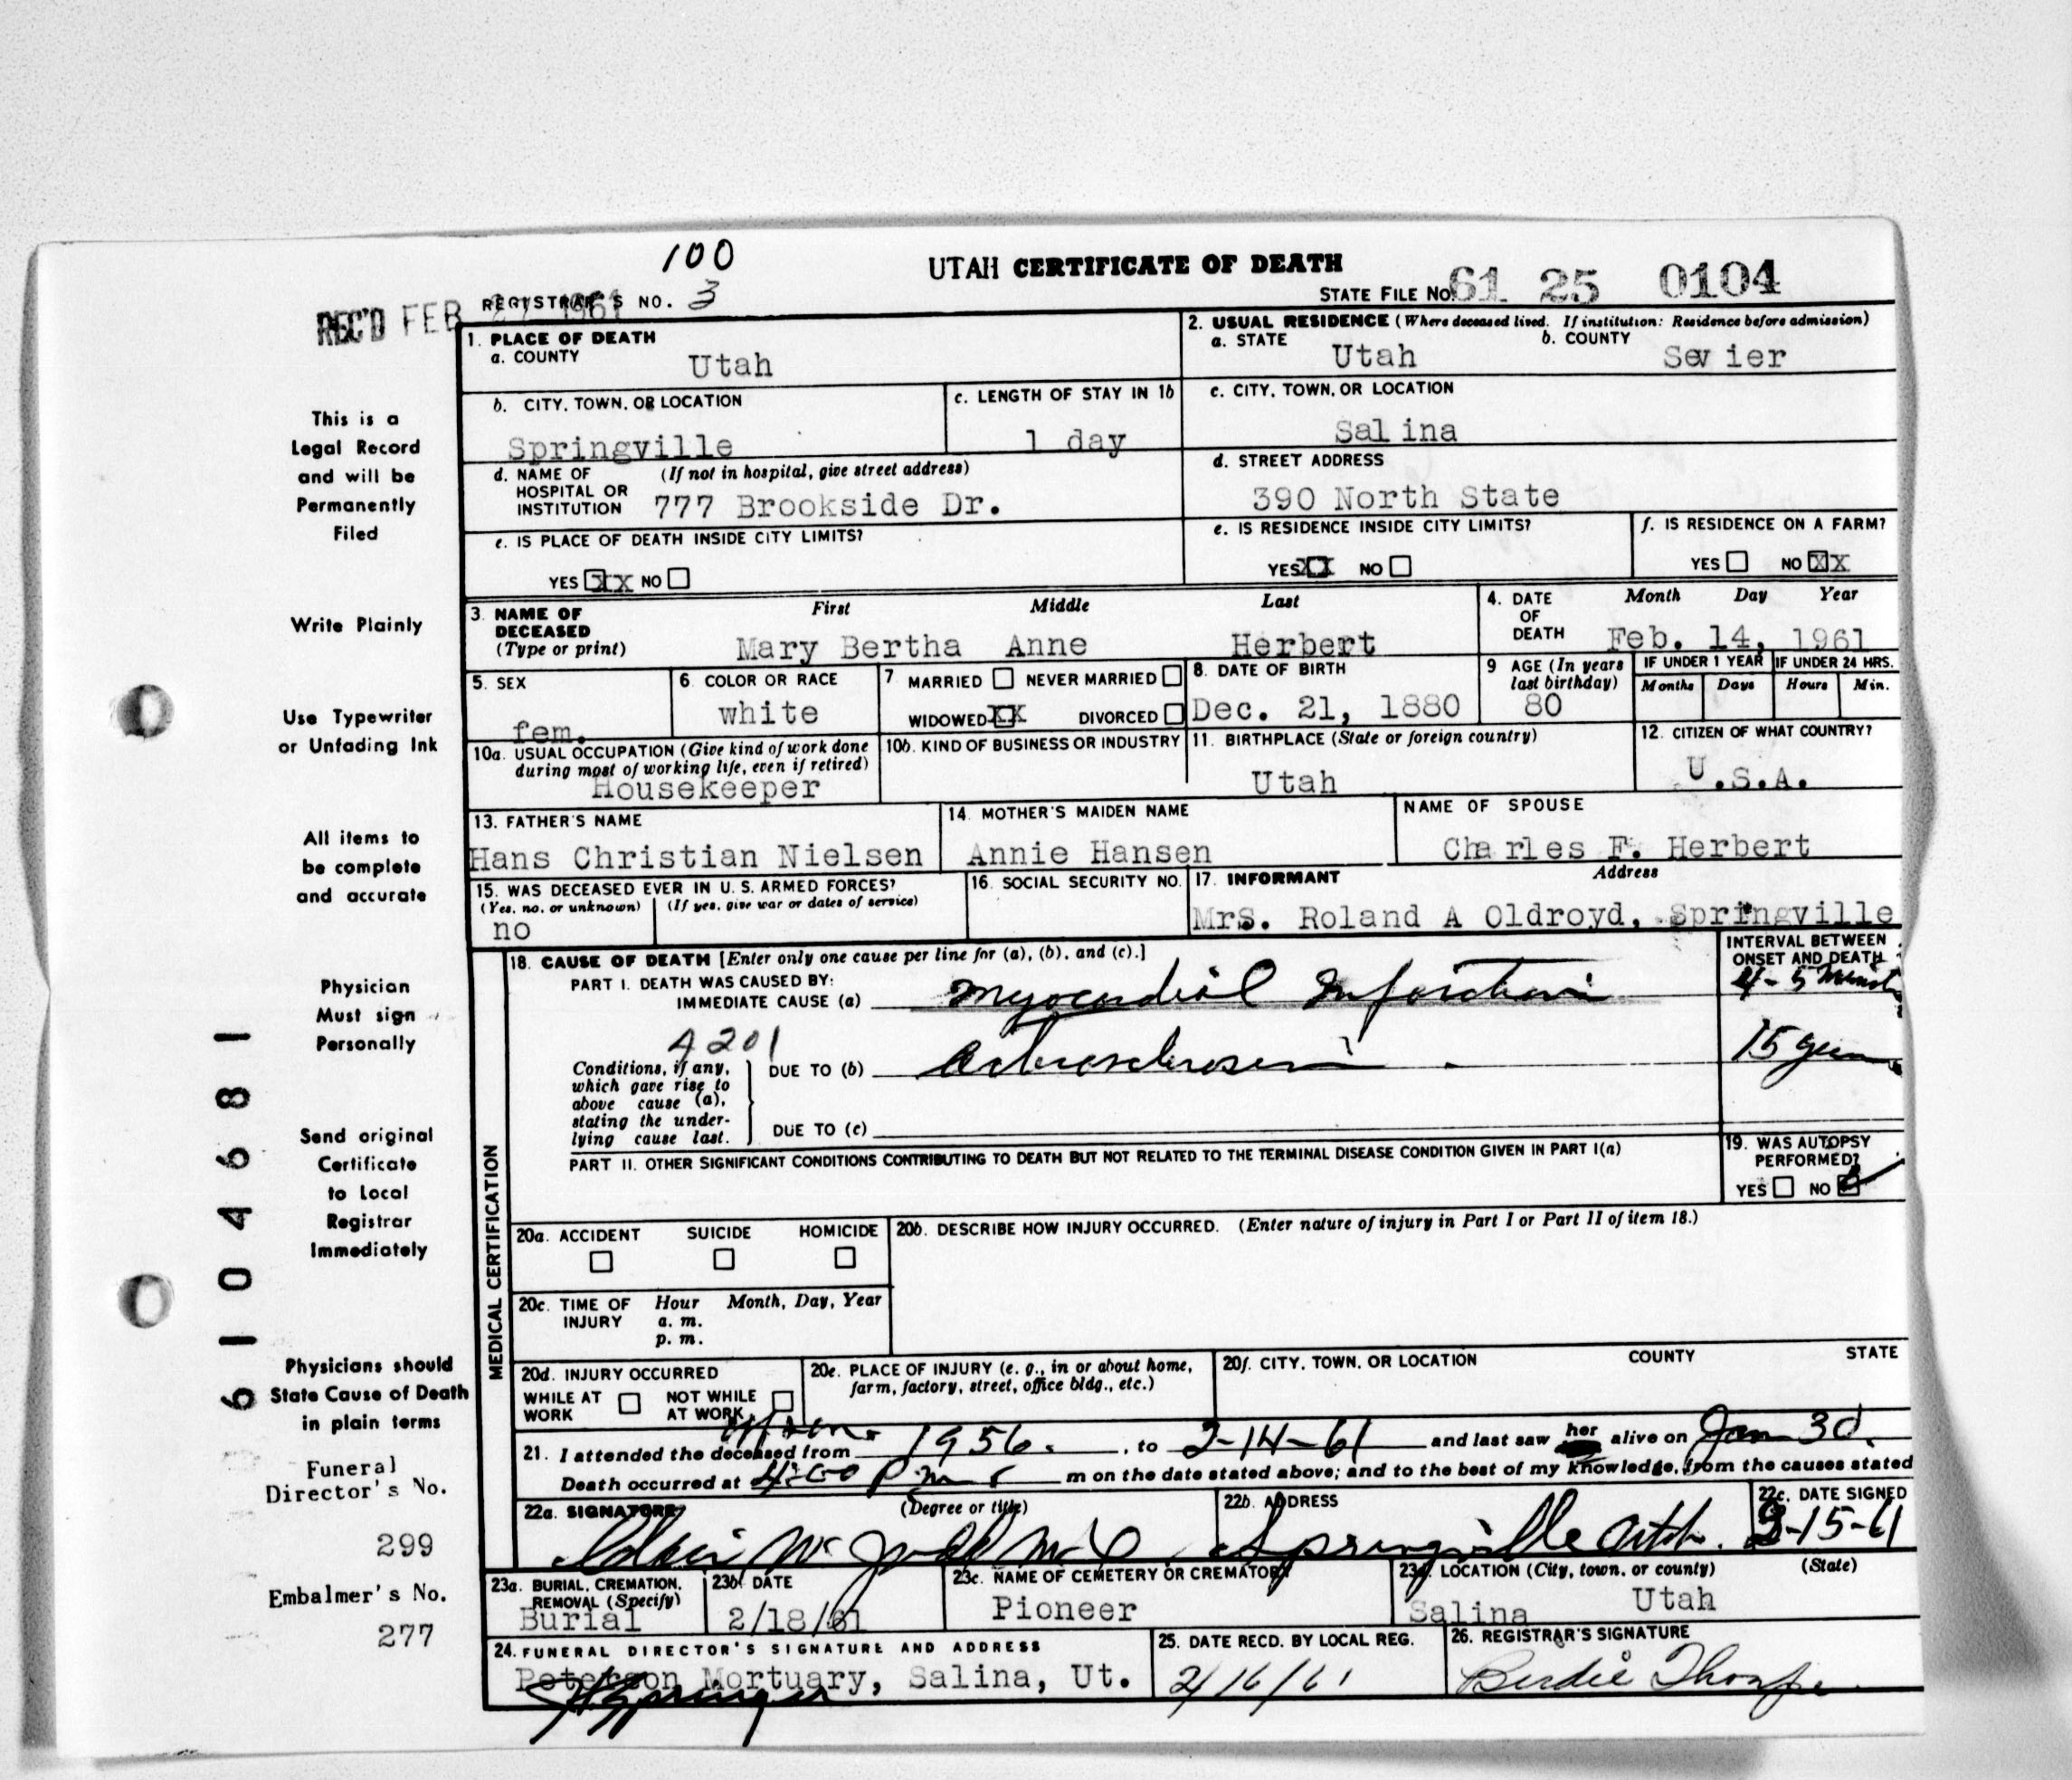 100
UTAH CERTIFICATE OF DEATH
REC'D FEB 27 1961
REGISTRAR'S NO. 3
STATE FILE NO. 61 25 0104
1. PLACE OF DEATH
a. COUNTY
Utah
2. USUAL RESIDENCE (Where deceased lived. If institution: Residence before admission)
a. STATE
Utah
b. COUNTY
Sevier
b. CITY, TOWN, OR LOCATION
Springville
c. LENGTH OF STAY IN 1b
1 day
c. CITY, TOWN, OR LOCATION
Salina
d. NAME OF (If not in hospital, give street address)
HOSPITAL OR
INSTITUTION
777 Brookside Dr.
d. STREET ADDRESS
390 North State
e. IS PLACE OF DEATH INSIDE CITY LIMITS?
YES XX NO
e. IS RESIDENCE INSIDE CITY LIMITS?
YES XX NO
f. IS RESIDENCE ON A FARM?
YES NO XX
3. NAME OF
DECEASED
(Type or print)
First Middle Last
Mary Bertha Anne Herbert
4. DATE
OF
DEATH
Month Day Year
Feb. 14, 1961
5. SEX
fem.
6. COLOR OR RACE
white
7. MARRIED NEVER MARRIED
WIDOWED XX DIVORCED
8. DATE OF BIRTH
Dec. 21, 1880
9 AGE (In years
last birthday)
80
IF UNDER 1 YEAR
Months Days
IF UNDER 24 HRS.
Hours Min.
10a. USUAL OCCUPATION (Give kind of work done
during most of working life, even if retired)
Housekeeper
10b. KIND OF BUSINESS OR INDUSTRY
11. BIRTHPLACE (State or foreign country)
Utah
12. CITIZEN OF WHAT COUNTRY?
U.S.A.
13. FATHER'S NAME
Hans Christian Nielsen
14. MOTHER'S MAIDEN NAME
Annie Hansen
NAME OF SPOUSE
Charles F. Herbert
15. WAS DECEASED EVER IN U. S. ARMED FORCES?
(Yes, no, or unknown) (If yes, give war or dates of service)
no
16. SOCIAL SECURITY NO.
17. INFORMANT Address
Mrs. Roland A Oldroyd, Springville
MEDICAL CERTIFICATION
18. CAUSE OF DEATH [Enter only one cause per line for (a), (b), and (c).]
PART I. DEATH WAS CAUSED BY:
IMMEDIATE CAUSE (a) Myocardial Infarction
INTERVAL BETWEEN
ONSET AND DEATH
4-5
4201
Conditions, if any,
which gave rise to
above cause (a),
stating the under-
lying cause last.
DUE TO (b)
15
DUE TO (c)
PART II. OTHER SIGNIFICANT CONDITIONS CONTRIBUTING TO DEATH BUT NOT RELATED TO THE TERMINAL DISEASE CONDITION GIVEN IN PART I(a)
19. WAS AUTOPSY
PERFORMED?
YES NO
20a. ACCIDENT SUICIDE HOMICIDE
20b. DESCRIBE HOW INJURY OCCURRED. (Enter nature of injury in Part I or Part II of item 18.)
20c. TIME OF
INJURY
Hour Month, Day, Year
a. m.
p. m.
20d. INJURY OCCURRED
WHILE AT
WORK
NOT WHILE
AT WORK
20e. PLACE OF INJURY (e. g., in or about home,
farm, factory, street, office bldg., etc.)
20f. CITY, TOWN, OR LOCATION COUNTY STATE
21. I attended the deceased from 1956. , to 2-14-61 and last saw her alive on Jan 30.
Death occurred at 4:00 P.m m on the date stated above; and to the best of my knowledge, from the causes stated
22a. SIGNATURE (Degree or title)
22b. ADDRESS
Springville Utah.
22c. DATE SIGNED
2-15-61
23a. BURIAL, CREMATION,
REMOVAL (Specify)
Burial
23b. DATE
2/18/61
23c. NAME OF CEMETERY OR CREMATORY
Pioneer
23d. LOCATION (City, town, or county) (State)
Salina Utah
24. FUNERAL DIRECTOR'S SIGNATURE AND ADDRESS
Peterson Mortuary, Salina, Ut.
25. DATE RECD. BY LOCAL REG.
2/16/61
26. REGISTRAR'S SIGNATURE
Birdie Thorpe
This is a
Legal Record
and will be
Permanently
Filed
Write Plainly
Use Typewriter
or Unfading Ink
All items to
be complete
and accurate
Physician
Must sign
Personally
Send original
Certificate
to Local
Registrar
Immediately
Physicians should
State Cause of Death
in plain terms
Funeral
Director's No.
299
Embalmer's No.
277
6104681